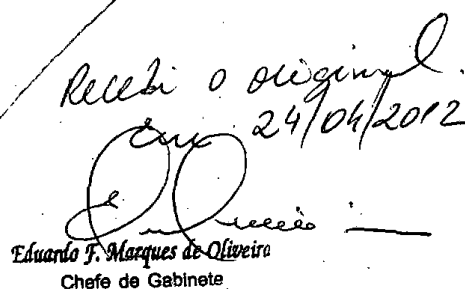 Recebi o original.
em 24/04/2012
Eduardo F. Marques de Oliveira
Chefe de Gabinete